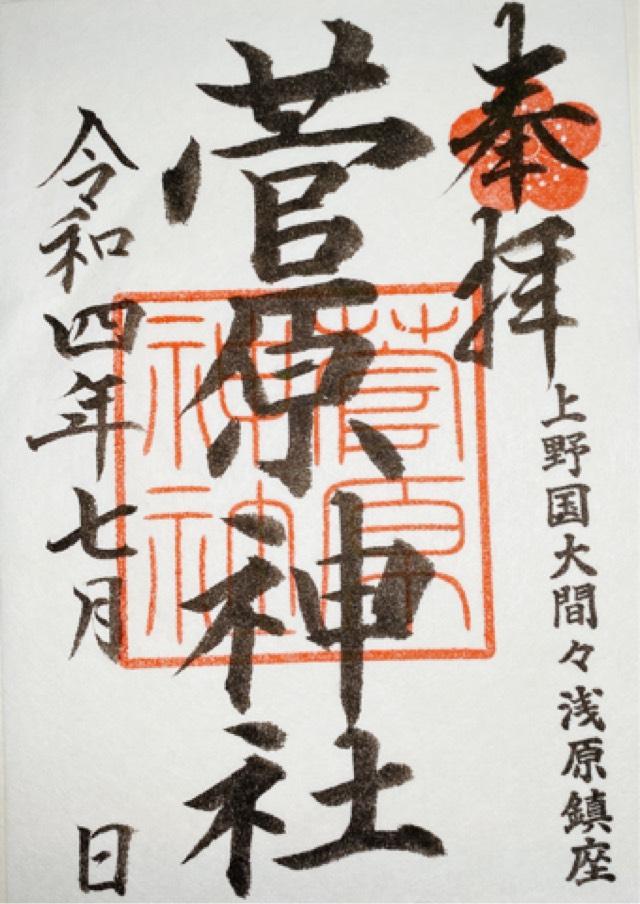 奉拝
上野国大間々浅原鎮座
菅原神社
令和四年七月 日